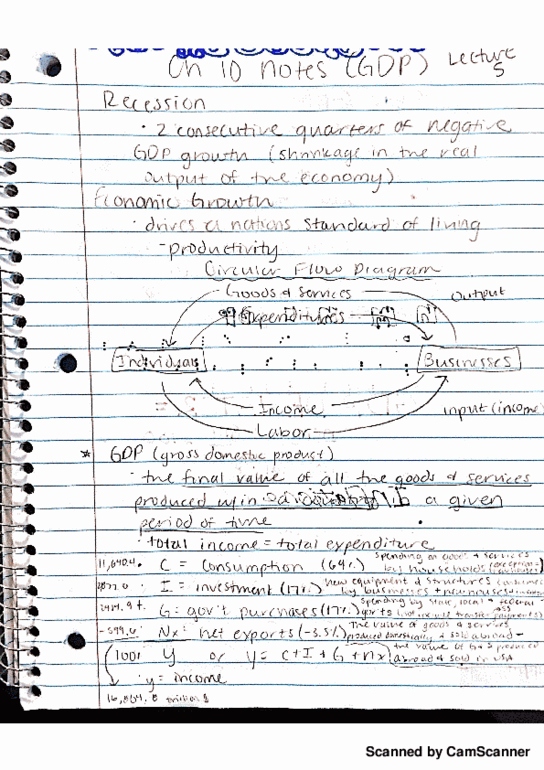 Ch 10 notes (GDP) Lecture 5
Recession
· 2 consecutive quarters of negative
GDP growth (shrinkage in the real
output of the economy)
Economic Growth
· drives a nations standard of living
-productivity
Circular Flow Diagram
Goods & Services Output
Expenditures
Individuals Businesses
Income input (income
Labor
* GDP (gross domestic product)
· the final value of all the goods & services
produced w/in a given
period of time
· total income = total expenditure
C = Consumption (64%) spending on goods & services
by households
I = investment (17%) new equipment & structures
by businesses +
G = gov't purchases (17%) spending by state, local & federal
gov'ts
-599.0 Nx = net exports (-3.5%) The value of goods & services
produced domestically & sold abroad -
(100% Y or Y = C + I + G + Nx the value of G&S produced
abroad & sold in USA
· y = income
Scanned by CamScanner